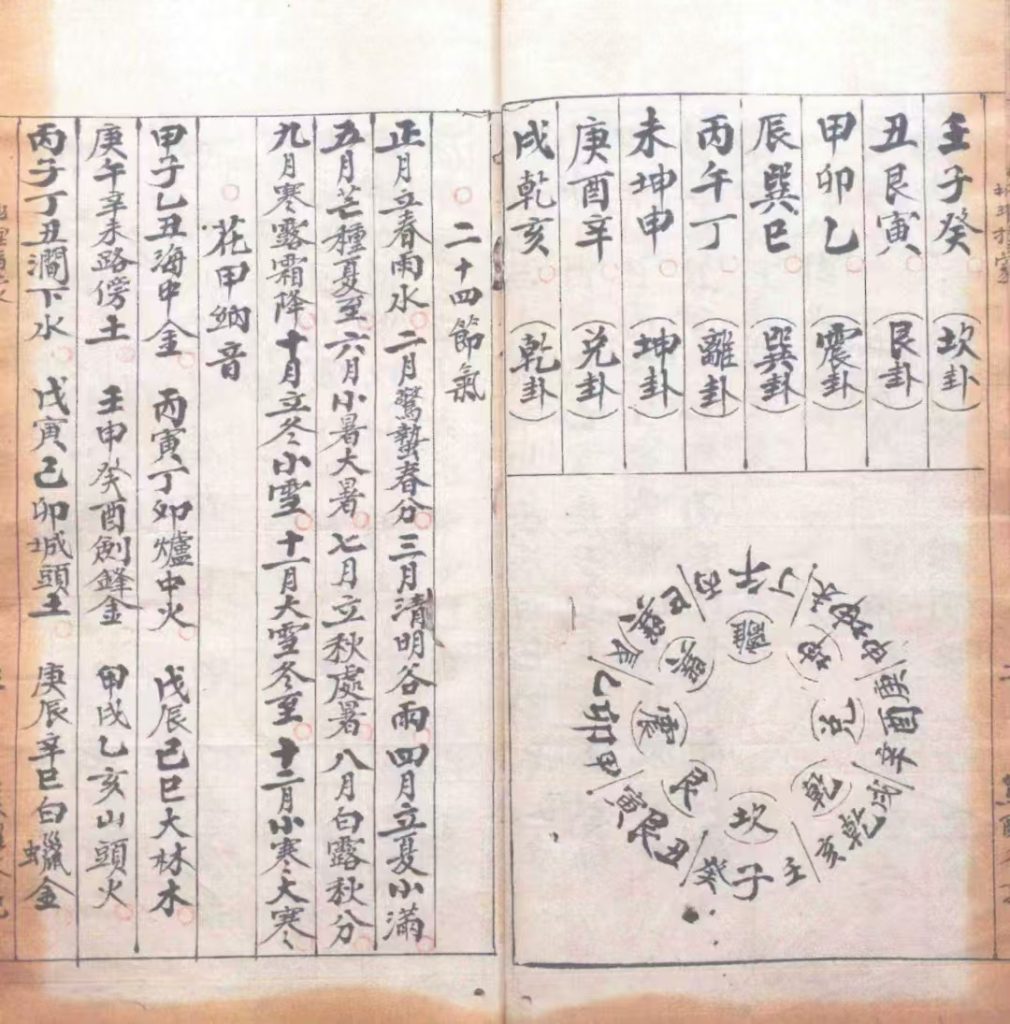 壬子癸 (坎卦)
丑艮寅 (艮卦)
甲卯乙 (震卦)
辰巽巳 (巽卦)
丙午丁 (離卦)
未坤申 (坤卦)
庚酉辛 (兑卦)
戌乾亥 (乾卦)
丙午丁 (離)
未坤申 (坤)
庚酉辛 (兑)
戌乾亥 (乾)
壬子癸 (坎)
丑艮寅 (艮)
甲卯乙 (震)
辰巽巳 (巽)
二十四節氣
正月立春雨水 二月驚蟄春分 三月清明谷雨 四月立夏小滿
五月芒種夏至 六月小暑大暑 七月立秋處暑 八月白露秋分
九月寒露霜降 十月立冬小雪 十一月大雪冬至 十二月小寒大寒
花甲納音
甲子乙丑海中金 丙寅丁卯爐中火 戊辰己巳大林木
庚午辛未路傍土 壬申癸酉劍鋒金 甲戌乙亥山頭火
丙子丁丑澗下水 戊寅己卯城頭土 庚辰辛巳白蠟金